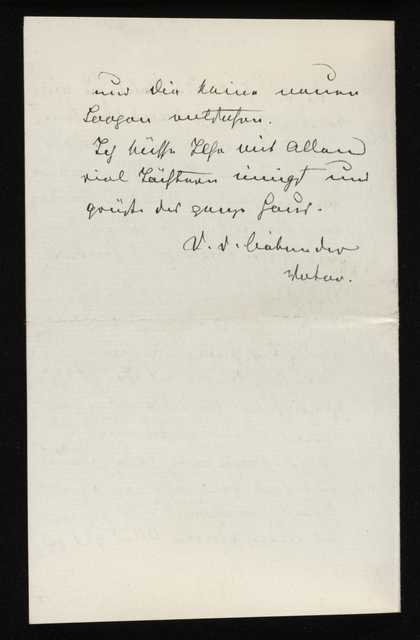 und Dir keine neuen
Sorgen entstehen.
Ich küsse Ilse mit allen
viel innigst und
grüße das ganze Haus.
D. d. liebender
Vater.